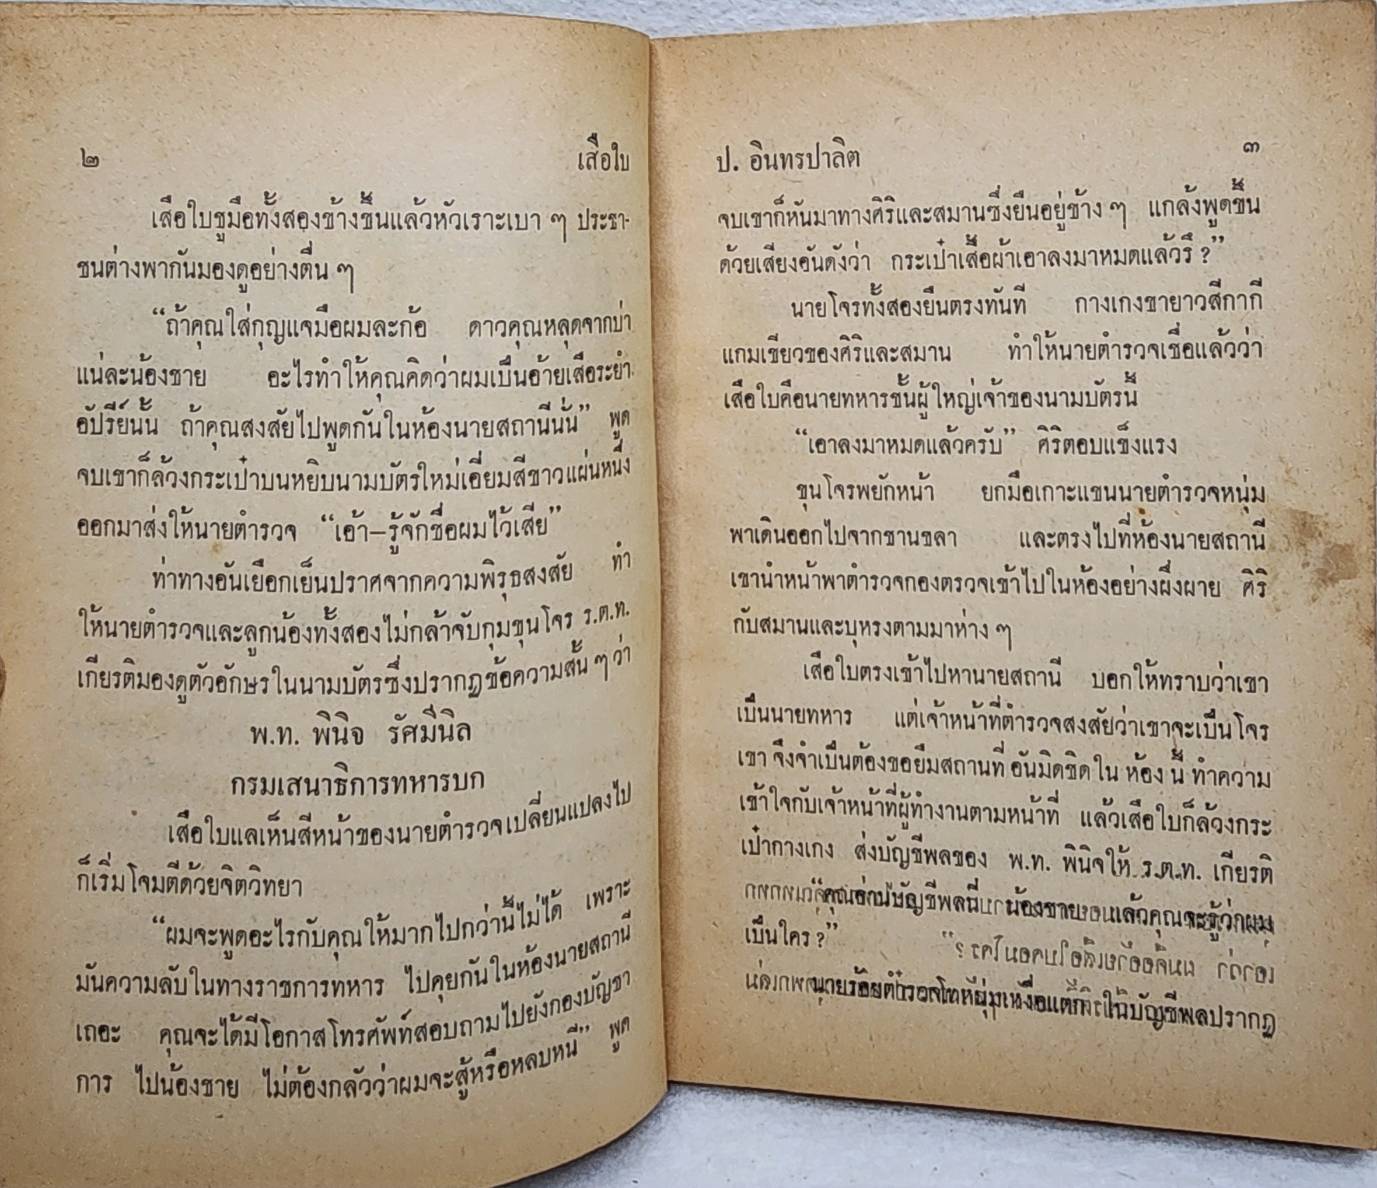 ๒ เสือใบ
เสือใบชูมือทั้งสองข้างขึ้นแล้วหัวเราะเบา ๆ ประชา-
ชนต่างพากันมองดูอย่างตื่น ๆ
“ถ้าคุณใส่กุญแจมือผมละก้อ ดาวคุณหลุดจากบ่า
แน่ละน้องชาย อะไรทำให้คุณคิดว่าผมเป็นอ้ายเสือระยำ
อัปรีย์นั้น ถ้าคุณสงสัยไปพูดกันในห้องนายสถานีนั่น” พูด
จบเขาก็ล้วงกระเป๋าบนหยิบนามบัตรใหม่เอี่ยมสีขาวแผ่นหนึ่ง
ออกมาส่งให้นายตำรวจ “เอ้า—รู้จักชื่อผมไว้เสีย”
ท่าทางอันเยือกเย็นปราศจากความพิรุธสงสัย ทำ
ให้นายตำรวจและลูกน้องทั้งสองไม่กล้าจับกุมขุนโจร ร.ต.ท.
เกียรติมองดูตัวอักษรในนามบัตรซึ่งปรากฏข้อความสั้น ๆ ว่า
พ.ท. พินิจ รัศมีนิล
กรมเสนาธิการทหารบก
เสือใบแลเห็นสีหน้าของนายตำรวจเปลี่ยนแปลงไป
ก็เริ่มโจมตีด้วยจิตวิทยา
“ผมจะพูดอะไรกับคุณให้มากไปกว่านี้ไม่ได้ เพราะ
มันความลับในทางราชการทหาร ไปคุยกันในห้องนายสถานี
เถอะ คุณจะได้มีโอกาสโทรศัพท์สอบถามไปยังกองบัญชา
การ ไปน้องชาย ไม่ต้องกลัวว่าผมจะสู้หรือหลบหนี” พูด
ป. อินทรปาลิต ๓
จบเขาก็หันมาทางศิริและสมานซึ่งยืนอยู่ข้าง ๆ แกล้งพูดขึ้น
ด้วยเสียงอันดังว่า กระเป๋าเสื้อผ้าเอาลงมาหมดแล้วรึ ?”
นายโจรทั้งสองยืนตรงทันที กางเกงขายาวสีกากี
แกมเขียวของศิริและสมาน ทำให้นายตำรวจเชื่อแล้วว่า
เสือใบคือนายทหารชั้นผู้ใหญ่เจ้าของนามบัตรนี้
“เอาลงมาหมดแล้วครับ” ศิริตอบแข็งแรง
ขุนโจรพยักหน้า ยกมือเกาะแขนนายตำรวจหนุ่ม
พาเดินออกไปจากชานชลา และตรงไปที่ห้องนายสถานี
เขานำหน้าพาตำรวจกองตรวจเข้าไปในห้องอย่างผึ่งผาย ศิริ
กับสมานและบุหรงตามมาห่าง ๆ
เสือใบตรงเข้าไปหานายสถานี บอกให้ทราบว่าเขา
เป็นนายทหาร แต่เจ้าหน้าที่ตำรวจสงสัยว่าเขาจะเป็นโจร
เขา จึงจำเป็นต้องขอยืมสถานที่ อันมิดชิด ใน ห้อง นี้ ทำความ
เข้าใจกับเจ้าหน้าที่ผู้ทำงานตามหน้าที่ แล้วเสือใบก็ล้วงกระ
เป๋ากางเกง ส่งบัญชีพลของ พ.ท. พินิจให้ ร.ต.ท. เกียรติ
“คุณอ่านบัญชีพลนี่ น้องชาย แล้วคุณจะรู้ว่าผม
เป็นใคร ?”
นายร้อยตำรวจโทหนุ่มเหงื่อแตก ในบัญชีพลปรากฏ